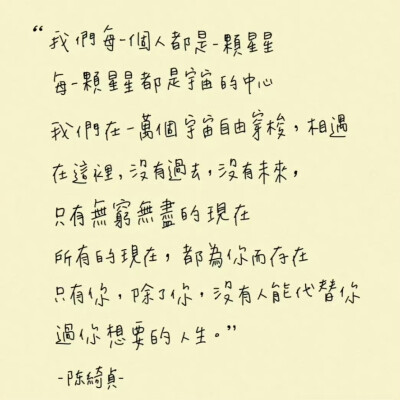 “我們每一個人都是一顆星星
每一顆星星都是宇宙的中心
我們在一萬個宇宙自由穿梭，相遇
在這裡，沒有過去，沒有未來，
只有無窮無盡的現在
所有的現在，都為你而存在
只有你，除了你，沒有人能代替你
過你想要的人生。”
-陈綺貞-